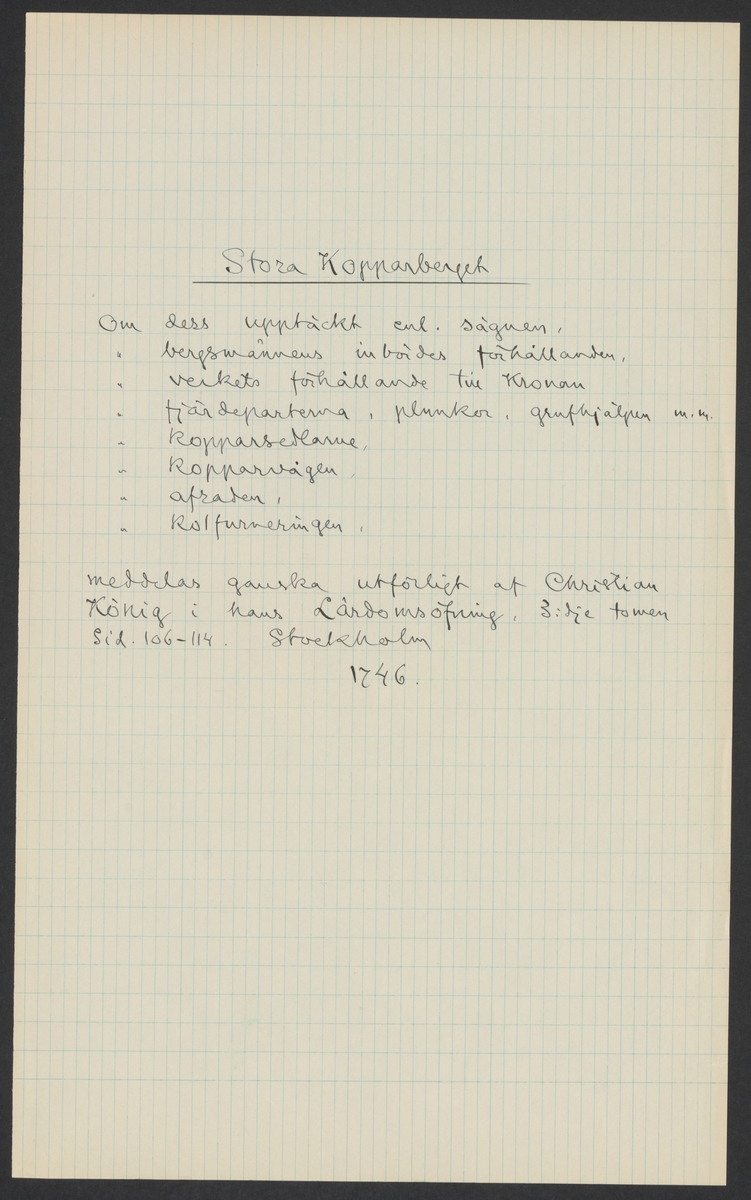 Stora Kopparberget
Om dess upptäckt enl. sägnen,
" bergsmännens inbördes förhållanden,
" verkets förhållande till Kronan
" fjärdeparterna, plunkor, grufhjälpen m.m.
" Kopparsedlarne,
" Kopparvågen,
" afraden,
" Kolfurneringen,
meddelas ganska utförligt af Christian
König i hans Lärdomsöfning, 3:dje tomen
Sid. 106-114. Stockholm
1746.